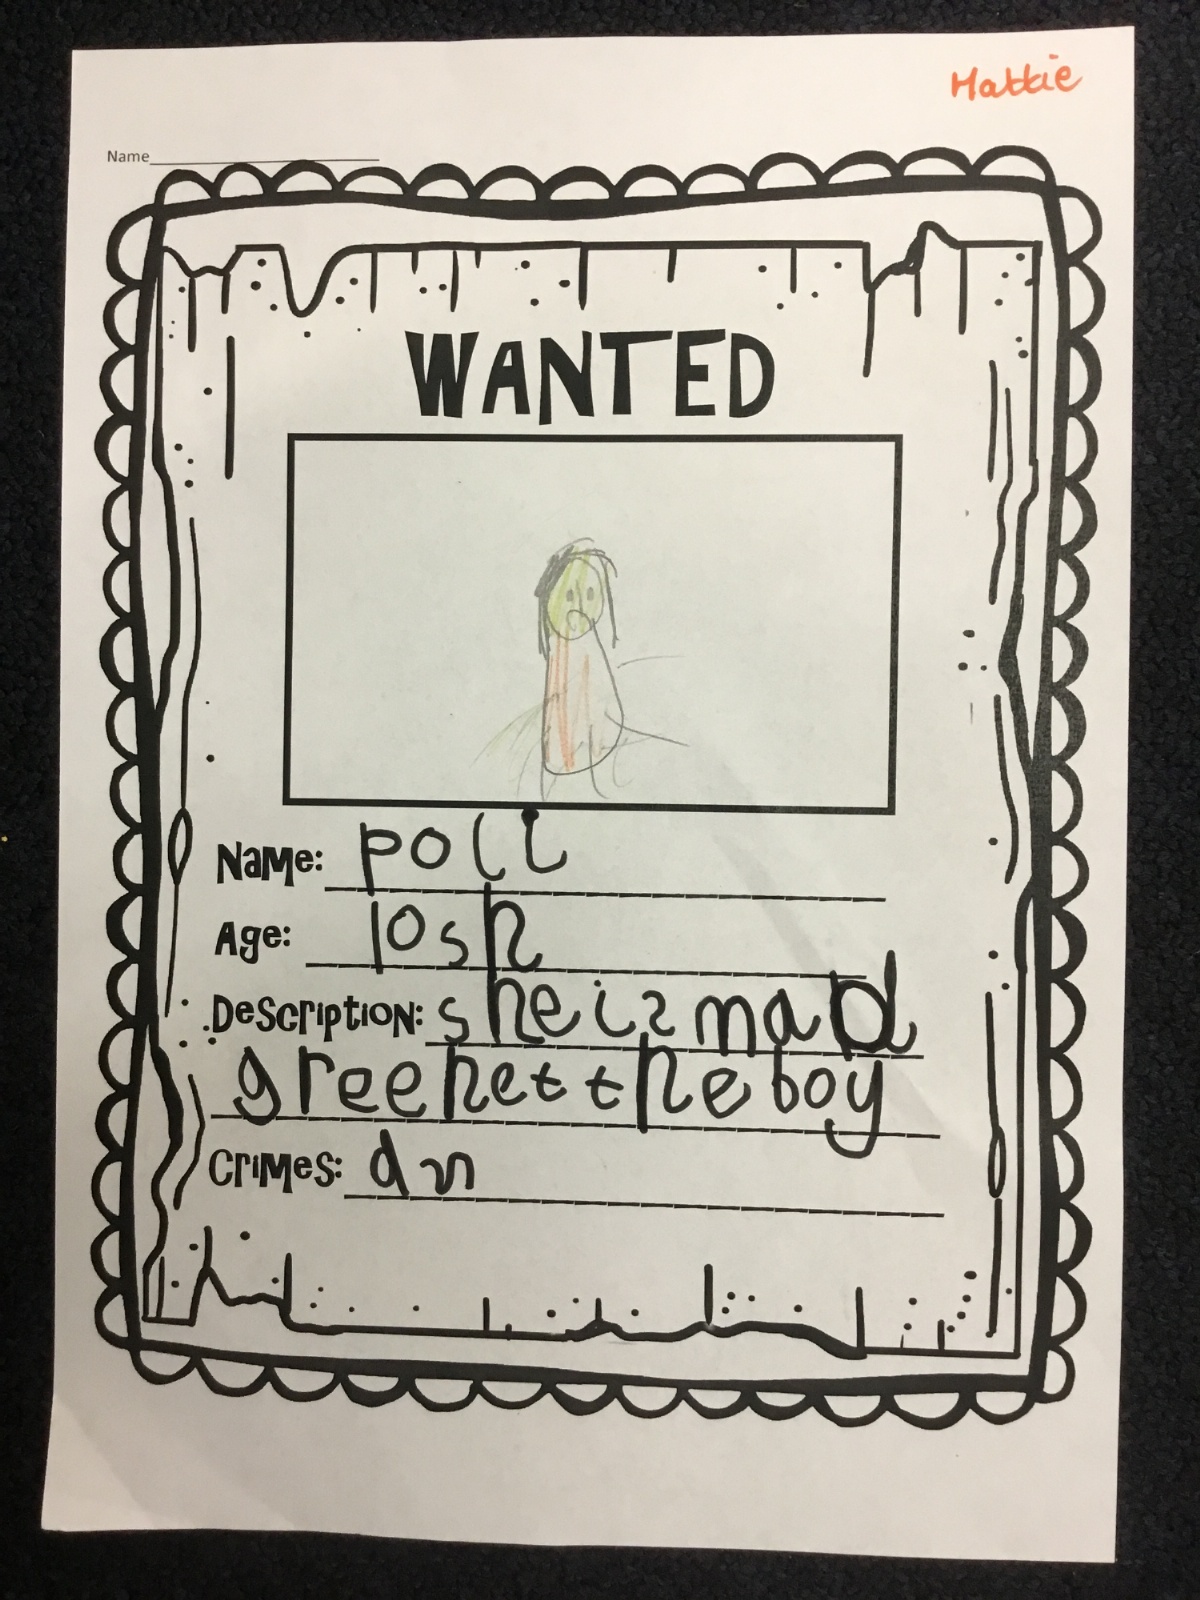 Mattie
Name
WANTED
Name: poll
Age: 10 sh
Description: she is mad
greehet the boy
Crimes: an